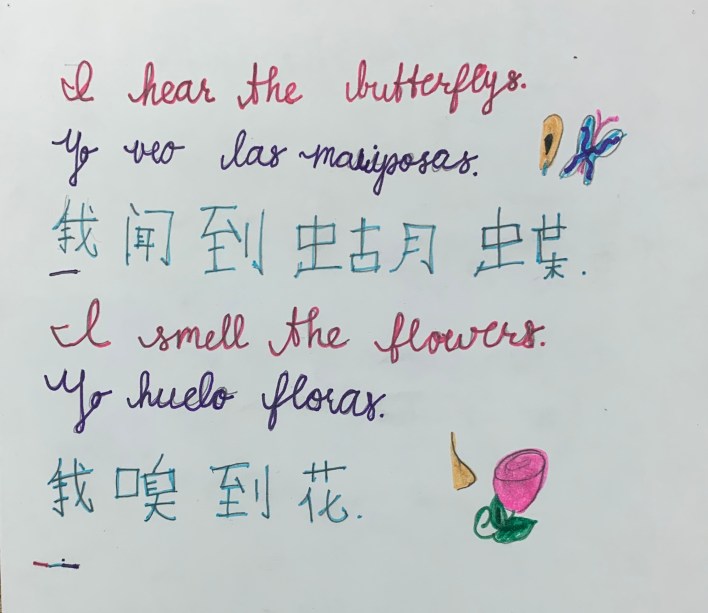 I hear the butterflys.
Yo veo las mariposas.
我 闻 到 蝴 蝶.
I smell the flowers.
Yo huelo floras.
我 嗅 到 花.